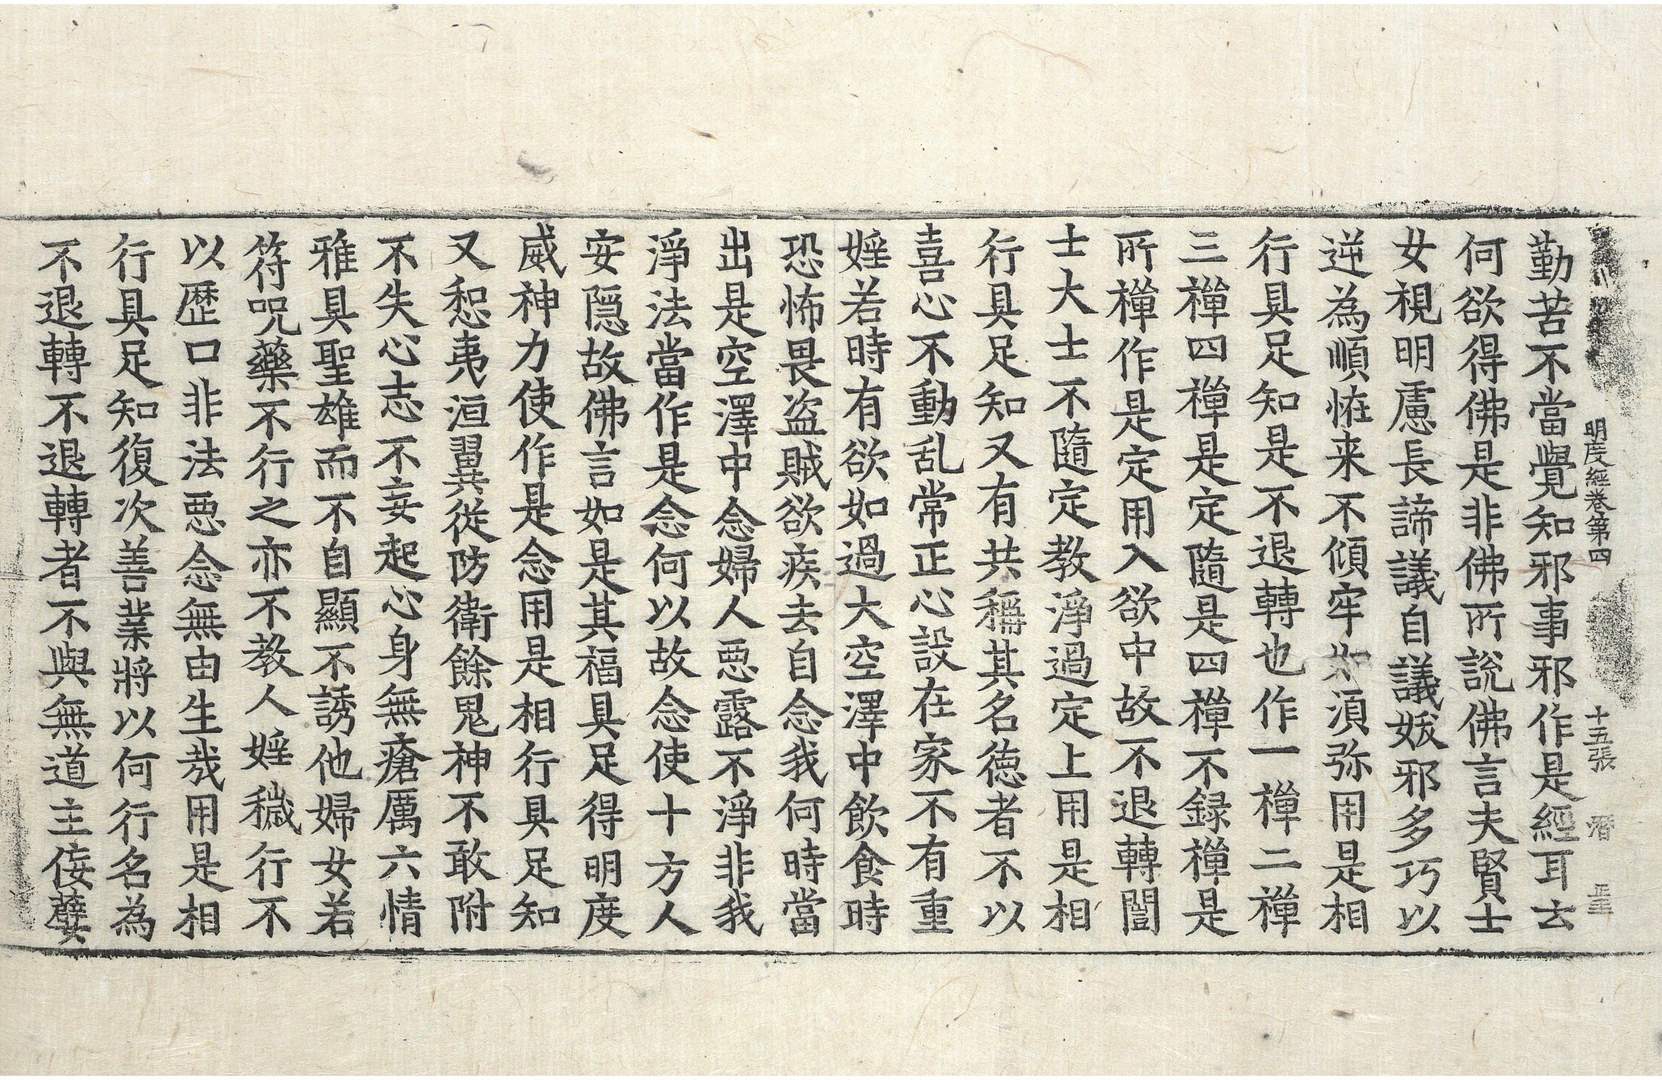 明度經卷第四 十五張 潛
勤苦不當覺知邪事邪作是經耳去
何欲得佛是非佛所說佛言夫賢士
女視明慮長諦議自議妭邪多巧以
逆為順恠来不傾牢如湏弥用是相
行具足知是不退轉也作一禪二禪
三禪四禪是定隨是四禪不録禪是
所禪作是定用入欲中故不退轉闓
士大士不隨定教淨過定上用是相
行具足知又有共稱其名德者不以
喜心不動乱常正心設在家不有重
婬若時有欲如過大空澤中飲食時
恐怖畏盜賊欲疾去自念我何時當
出是空澤中念婦人惡露不淨非我
淨法當作是念何以故念使十方人
安隠故佛言如是其福具足得明度
威神力使作是念用是相行具足知
又惒夷洹翼從防衛餘鬼神不敢附
不失心志不妄起心身無瘡厲六情
雅具聖雄而不自顯不誘他婦女若
符呪藥不行之亦不教人婬穢行不
以歷口非法惡念無由生哉用是相
行具足知復次善業將以何行名為
不退轉不退轉者不與無道主侫孽